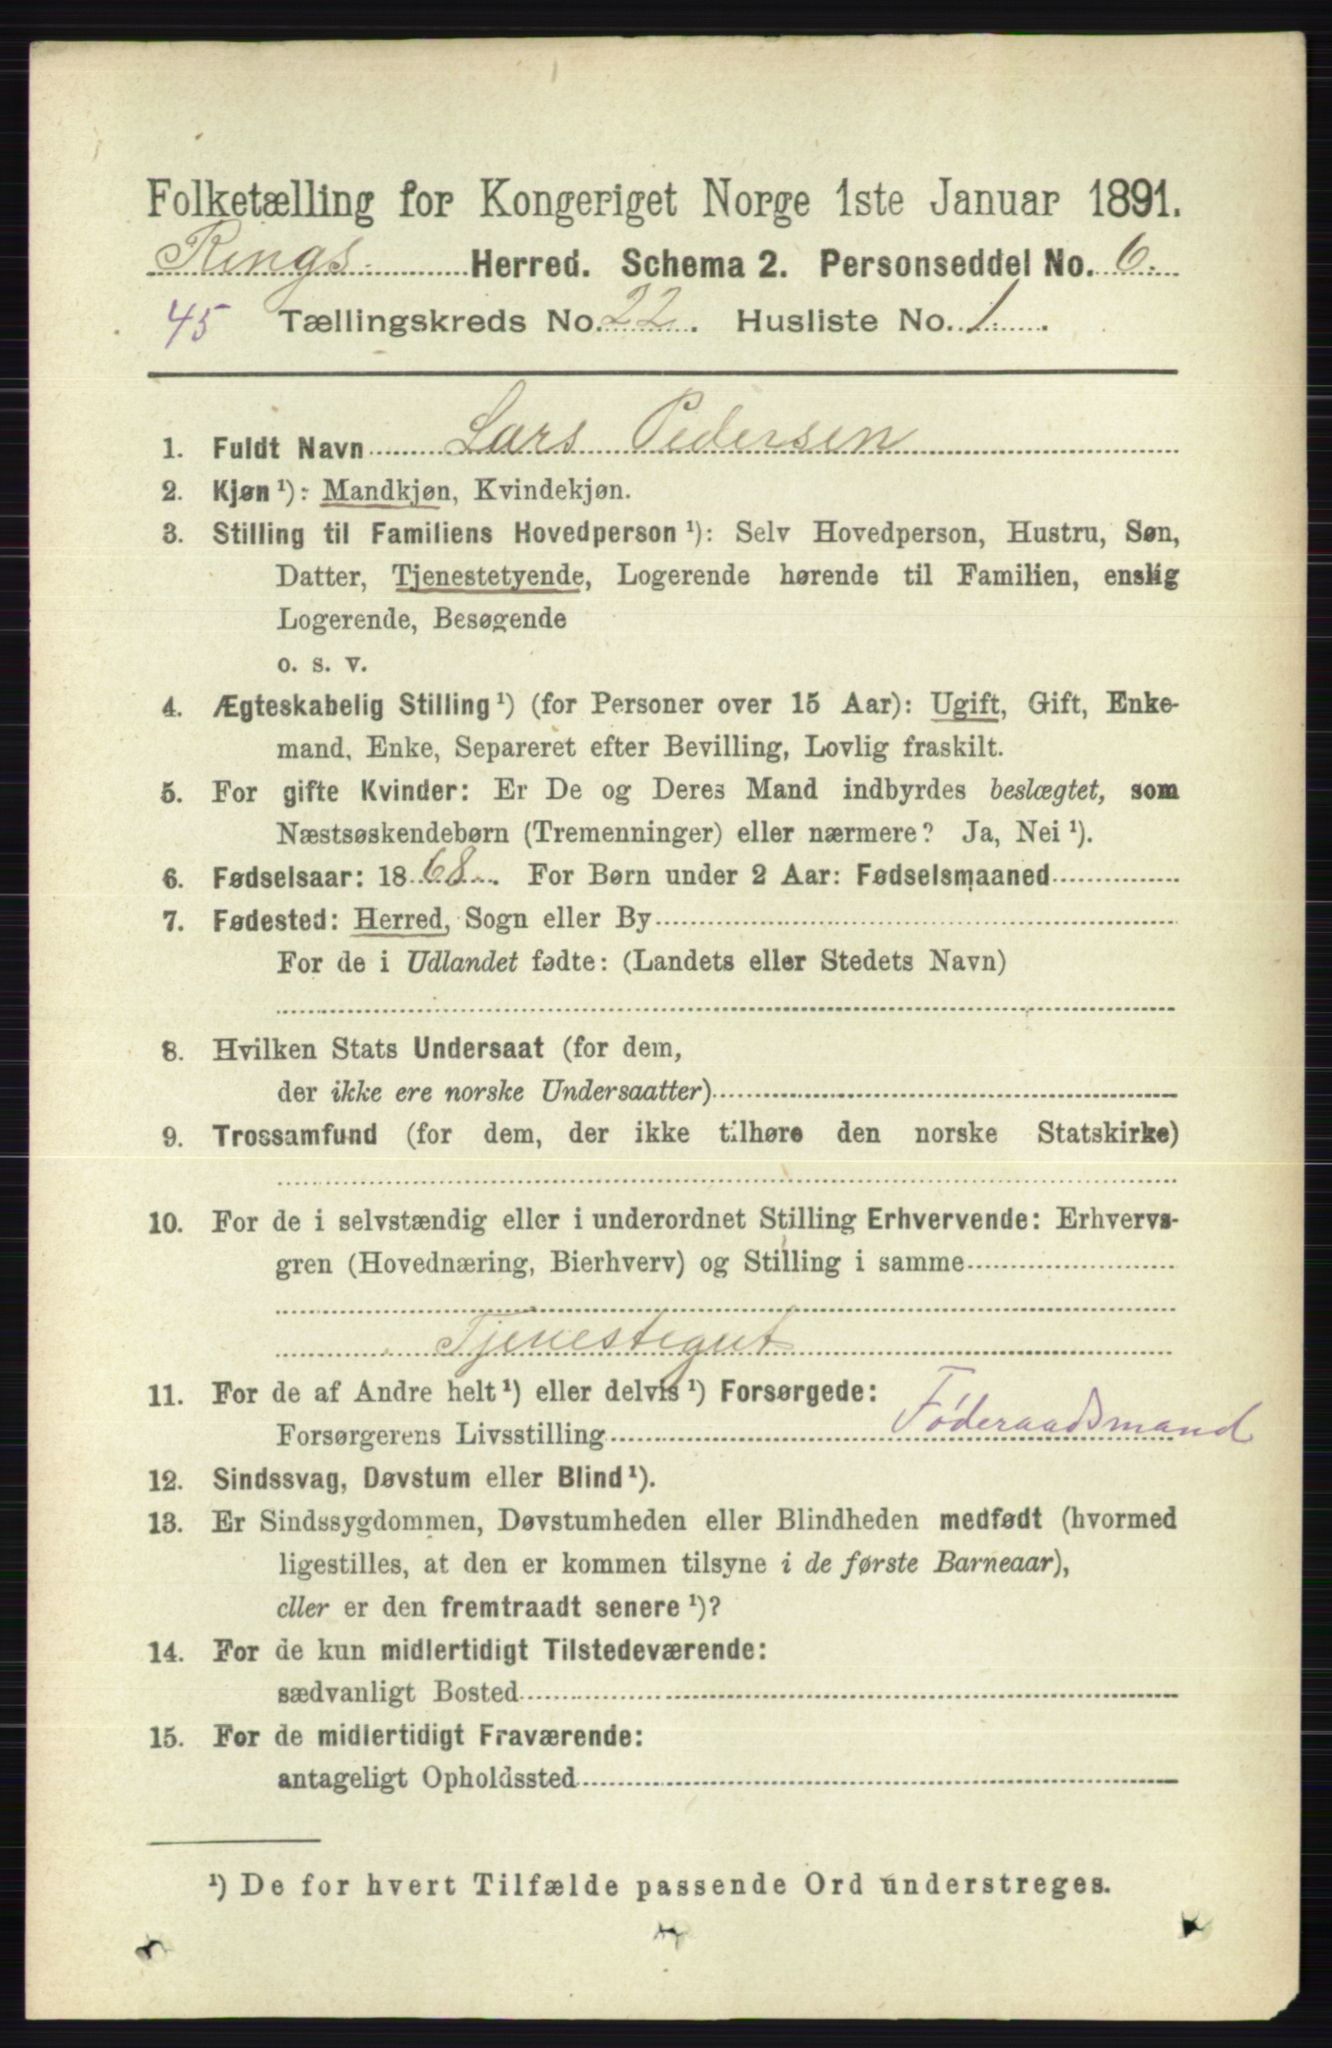 Folketælling for Kongeriget Norge 1ste Januar 1891.
Rings Herred. Schema 2. Personseddel No. 6.
45 Tællingskreds No. 22. Husliste No. 1.
1. Fuldt Navn Lars Pedersen
2. Kjøn ¹): Mandkjøn, Kvindekjøn.
3. Stilling til Familiens Hovedperson ¹): Selv Hovedperson, Hustru, Søn,
Datter, Tjenestetyende, Logerende hørende til Familien, enslig
Logerende, Besøgende
o. s. v.
4. Ægteskabelig Stilling ¹) (for Personer over 15 Aar): Ugift, Gift, Enke-
mand, Enke, Separeret efter Bevilling, Lovlig fraskilt.
5. For gifte Kvinder: Er De og Deres Mand indbyrdes beslægtet, som
Næstsøskendebørn (Tremenninger) eller nærmere? Ja, Nei ¹).
6. Fødselsaar: 1868. For Børn under 2 Aar: Fødselsmaaned
7. Fødested: Herred, Sogn eller By
For de i Udlandet fødte: (Landets eller Stedets Navn)
8. Hvilken Stats Undersaat (for dem,
der ikke ere norske Undersaatter)
9. Trossamfund (for dem, der ikke tilhøre den norske Statskirke)
10. For de i selvstændig eller i underordnet Stilling Erhvervende: Erhvervs-
gren (Hovednæring, Bierhverv) og Stilling i samme
Tjenestegut
11. For de af Andre helt ¹) eller delvis ¹) Forsørgede:
Forsørgerens Livsstilling Føderaadsmand
12. Sindssvag, Døvstum eller Blind ¹).
13. Er Sindssygdommen, Døvstumheden eller Blindheden medfødt (hvormed
ligestilles, at den er kommen tilsyne i de første Barneaar),
eller er den fremtraadt senere ¹)?
14. For de kun midlertidigt Tilstedeværende:
sædvanligt Bosted
15. For de midlertidigt Fraværende:
antageligt Opholdssted
¹) De for hvert Tilfælde passende Ord understreges.